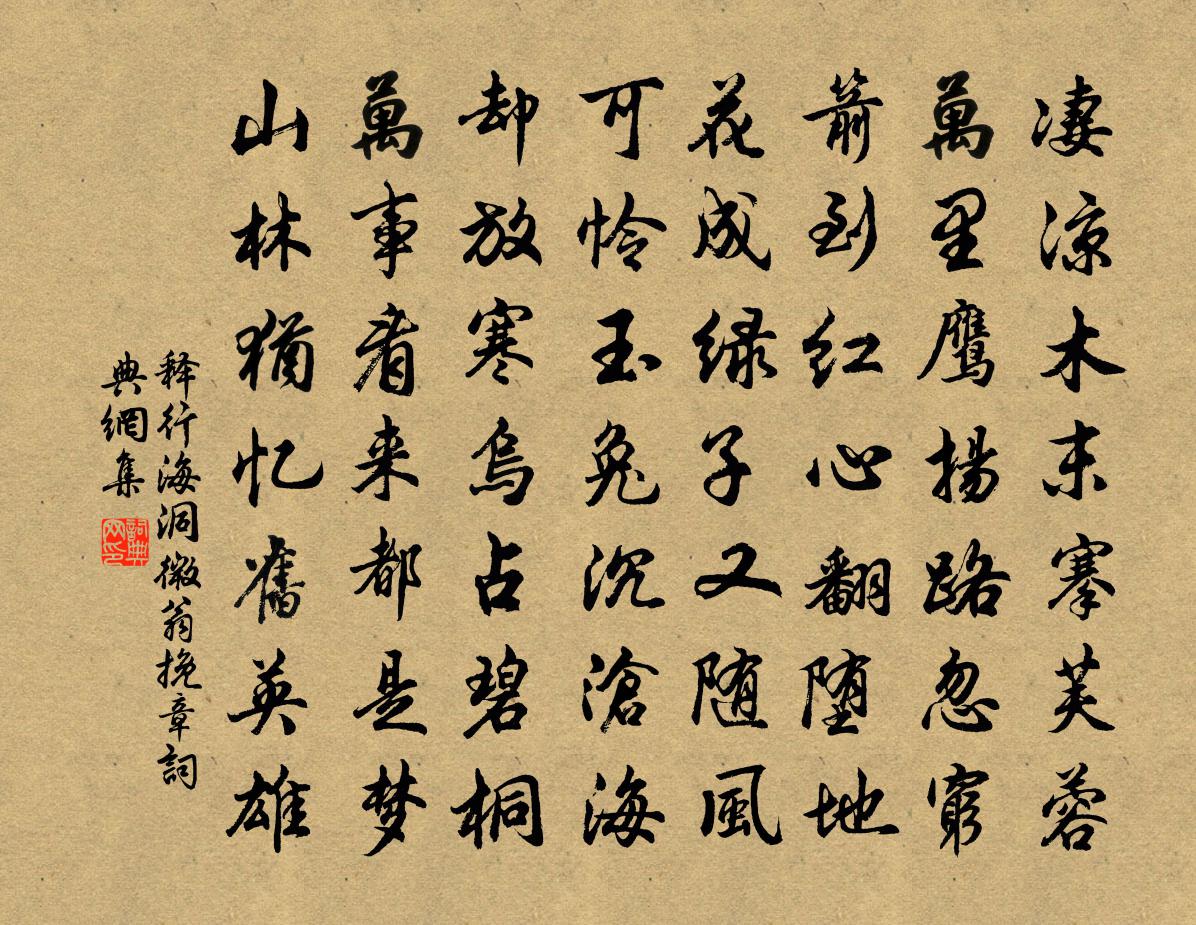 凄涼木末搴芙蓉
萬里鹰揚路忽窮
箭到红心翻堕地
花成绿子又随風
可怜玉兔沉滄海
却放寒烏占碧桐
萬事看来都是梦
山林猶忆舊英雄
释行海洞微翁挽章詞
典網集
詞典
网印